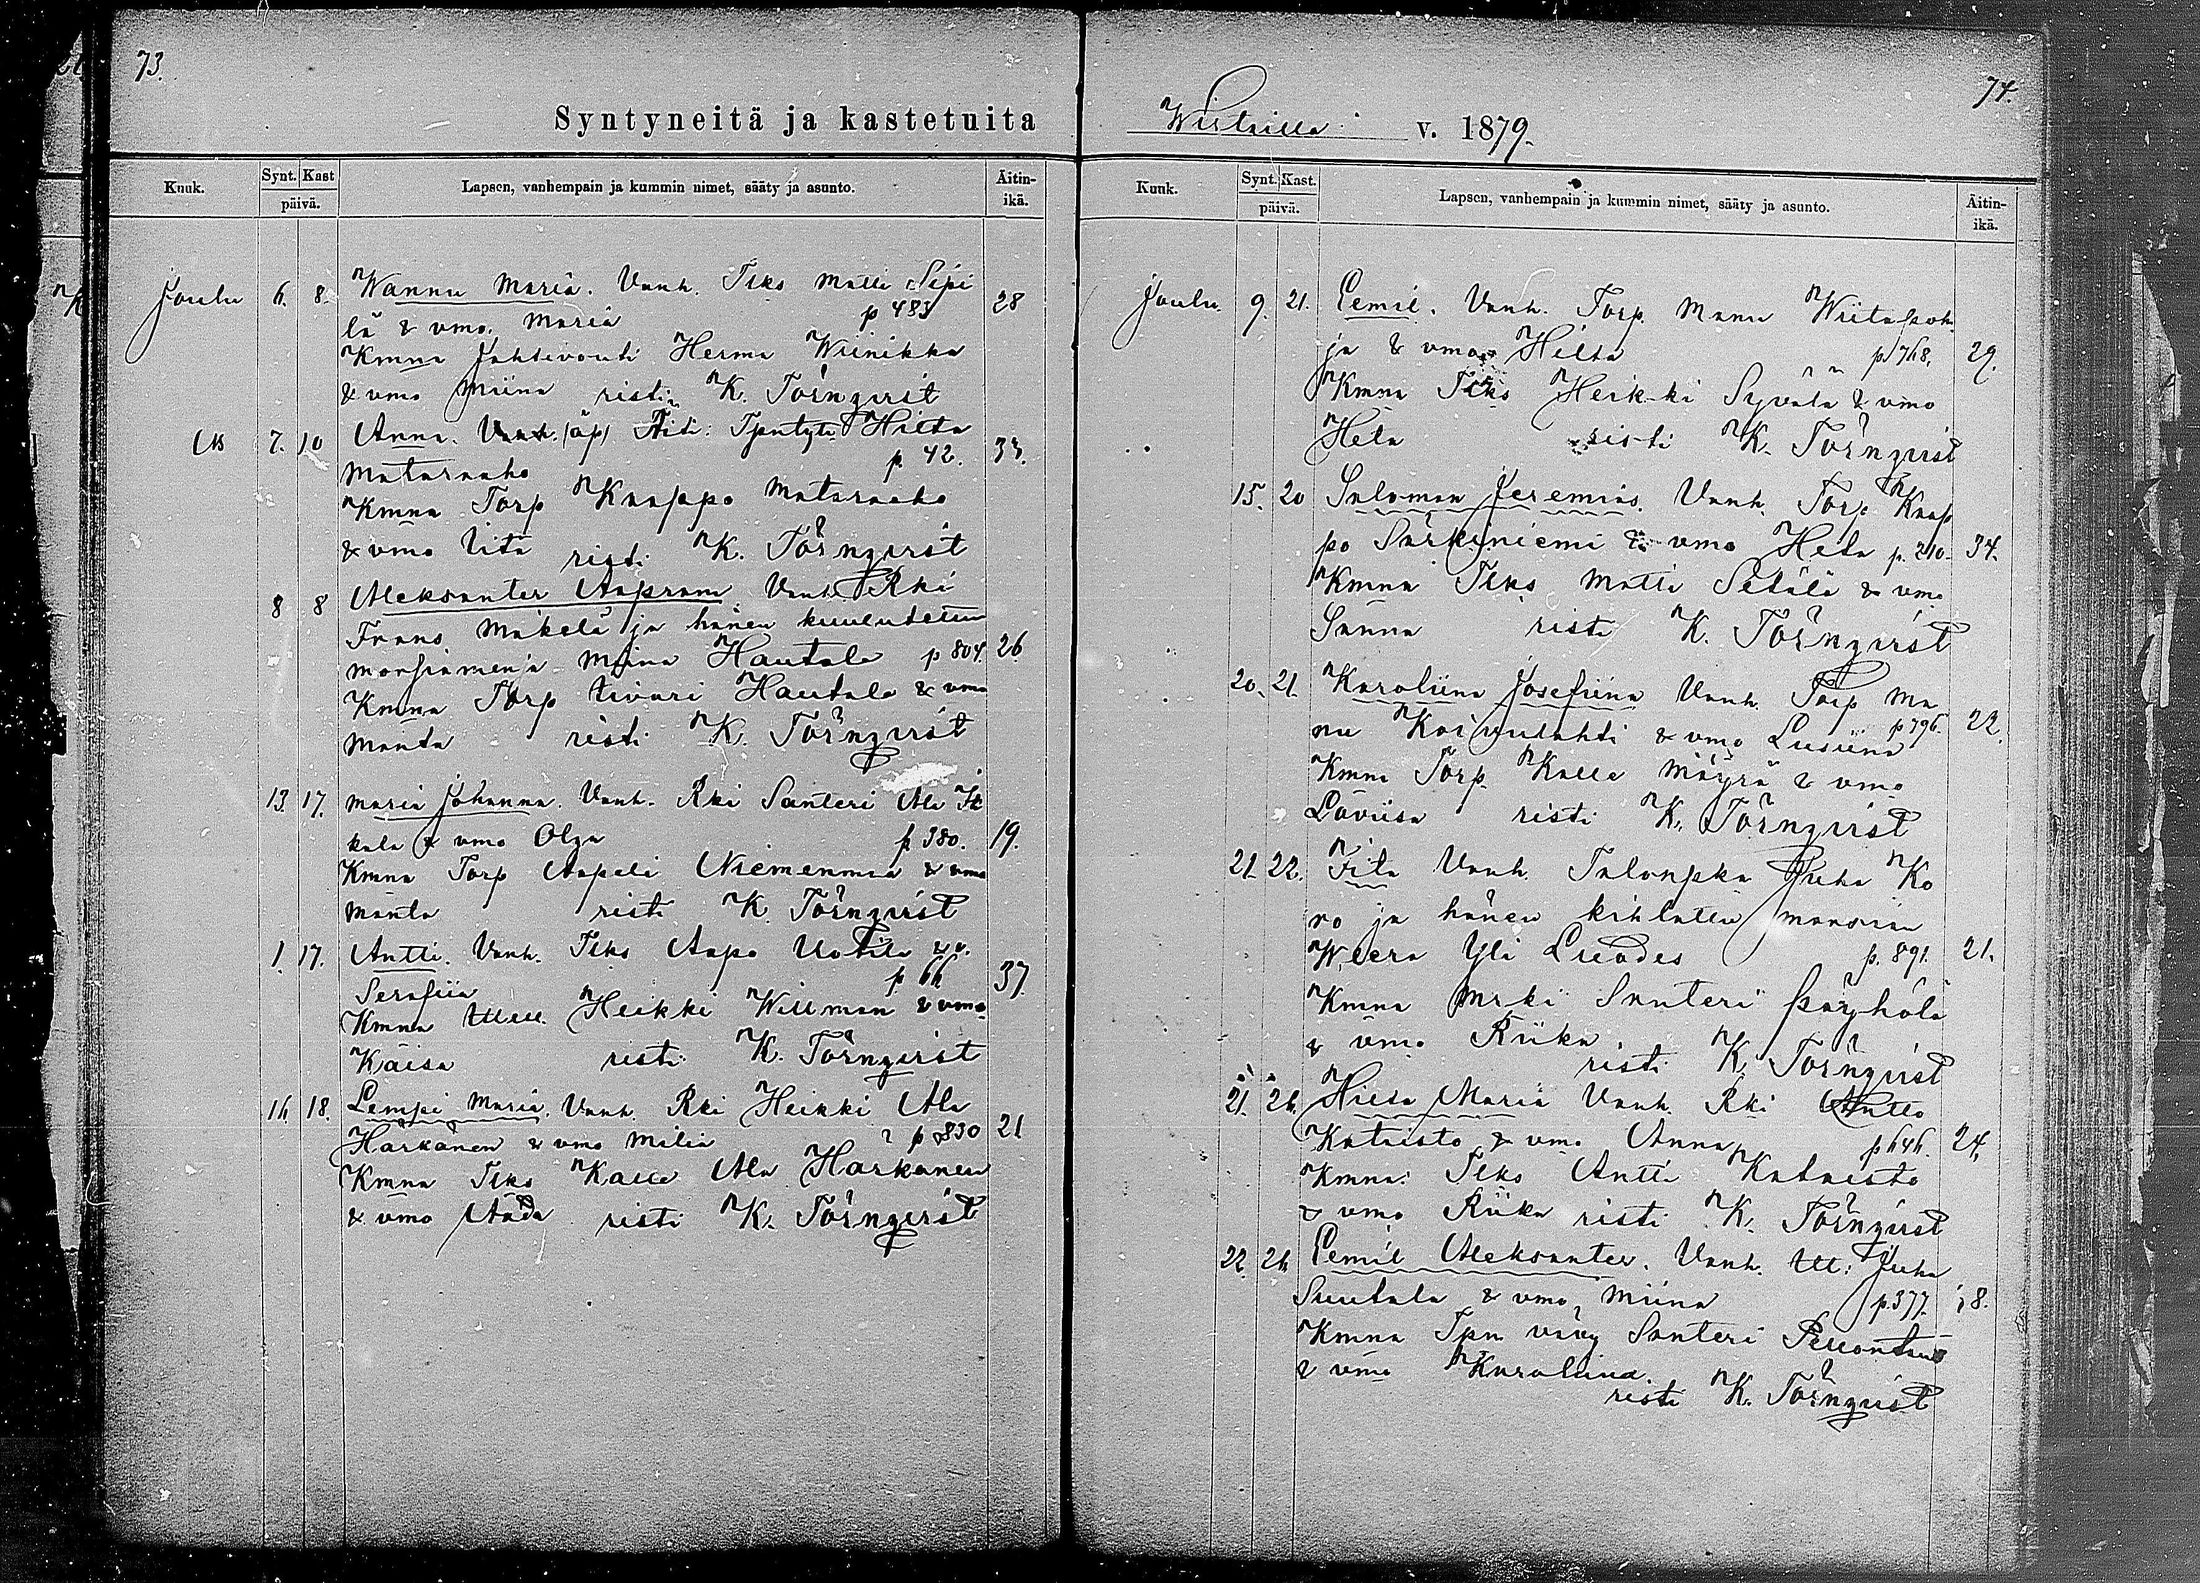 73.
Syntyneitä ja kastetuita
Kuuk. Synt. Kast päivä. Lapsen, vanhempain ja kummin nimet, sääty ja asunto. Äitin-ikä.
Joulu 6. 8. Wannu Maria. Vanh. Tlks Matti Sipi
lä & vmo. Maria p 483 28
Kmna Jahtivouti Herma Wiinikka
& vmo Miina risti K. Törnqvist
7. 10 Anna. (äp) Äiti: Hilta
Mataraaho p. 42. 33.
Kmna Torp Kaappo Mataraaho
& vmo Vita risti K. Törnqvist
8 8 Aleksanter Aapram Vanh. Rki
Frans Mäkelä ja hänen kuulutettu
morsiamenja Miina Hautala p 804. 26
Kmna Torp Iivari Hautala & vmo
Manta risti K. Törnqvist
13. 17. Maria Johanna. Vanh. Rki Santeri Ala Ik
kala & vmo Olga p 380. 19.
Kmna Torp Aapeli Niemenmaa & vmo
Manta risti K. Törnqvist
1. 17. Antti. Vanh. Tlks Aapo Uotila & v.
Serafiia p 66 37
Kmna Heikki Willman & vmo
Kaisa risti K. Törnqvist
16. 18. Lempi Maria. Vanh. Rki Heikki Ala
Härkänen & vmo Milia p 830 21
Kmna Tlks Kalle Ala Härkänen
& vmo Aada risti K. Törnqvist
74.
v. 1879.
Kuuk. Synt. Kast. päivä. Lapsen, vanhempain ja kummin nimet, sääty ja asunto. Äitin-ikä.
Joulu. 9. 21. Eemil. Vanh. Torp. Manu Wiitapoh
ja & vmo Hilta p 768. 29.
Kmna Tlks Heikki Syvälä & vmo
Heta risti K. Törnqvist
15. 20 Saloman Jeremias. Vanh. Torp. Kaap
po Särkiniemi & vmo Heta p. 210. 34.
Kmna Tlks Matti Setälä & vmo
Sanna risti K. Törnqvist
20. 21. Karoliina Josefiina Vanh. Torp Ma
nu Koivulahti & vmo Lusiina p 796. 22.
Kmna Torp. Kalle Mäyrä & vmo
Loviisa risti K. Törnqvist
21. 22. Fila Vanh. Talonpka Juha Ko
ro ja hänen kihlattu
Weera Yli Luodes p. 891. 21.
Kmna Mrki Santeri Päyhölä
& vmo Riika
risti K. Törnqvist
21. 26. Hilta Maria Vanh. Rki Antto
Kataisto & vmo Anna p 646. 24.
Kmna: Tlks Antti Kataisto
& vmo Riika risti K. Törnqvist
22. 26 Eemil Aleksanter. Vanh. Itl: Juha
Suutala & vmo Miina p. 377. 18.
Kmna Tpn vävy Santeri
& vmo Karoliina
risti K. Törnqvist